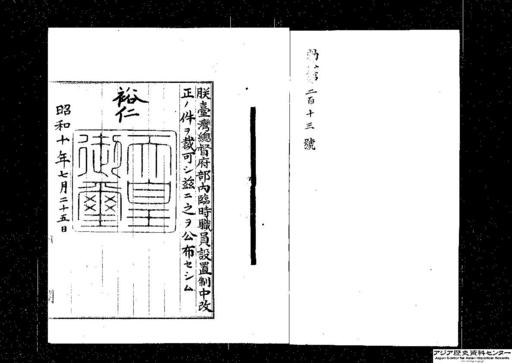 勅令第二百十三號
朕臺灣總督府部內臨時職員設置制中改
正ノ件ヲ裁可シ茲ニ之ヲ公布セシム
裕仁
天皇御璽
昭和十年七月二十五日
アジア歴史資料センター
Japan Center for Asian Historical Records